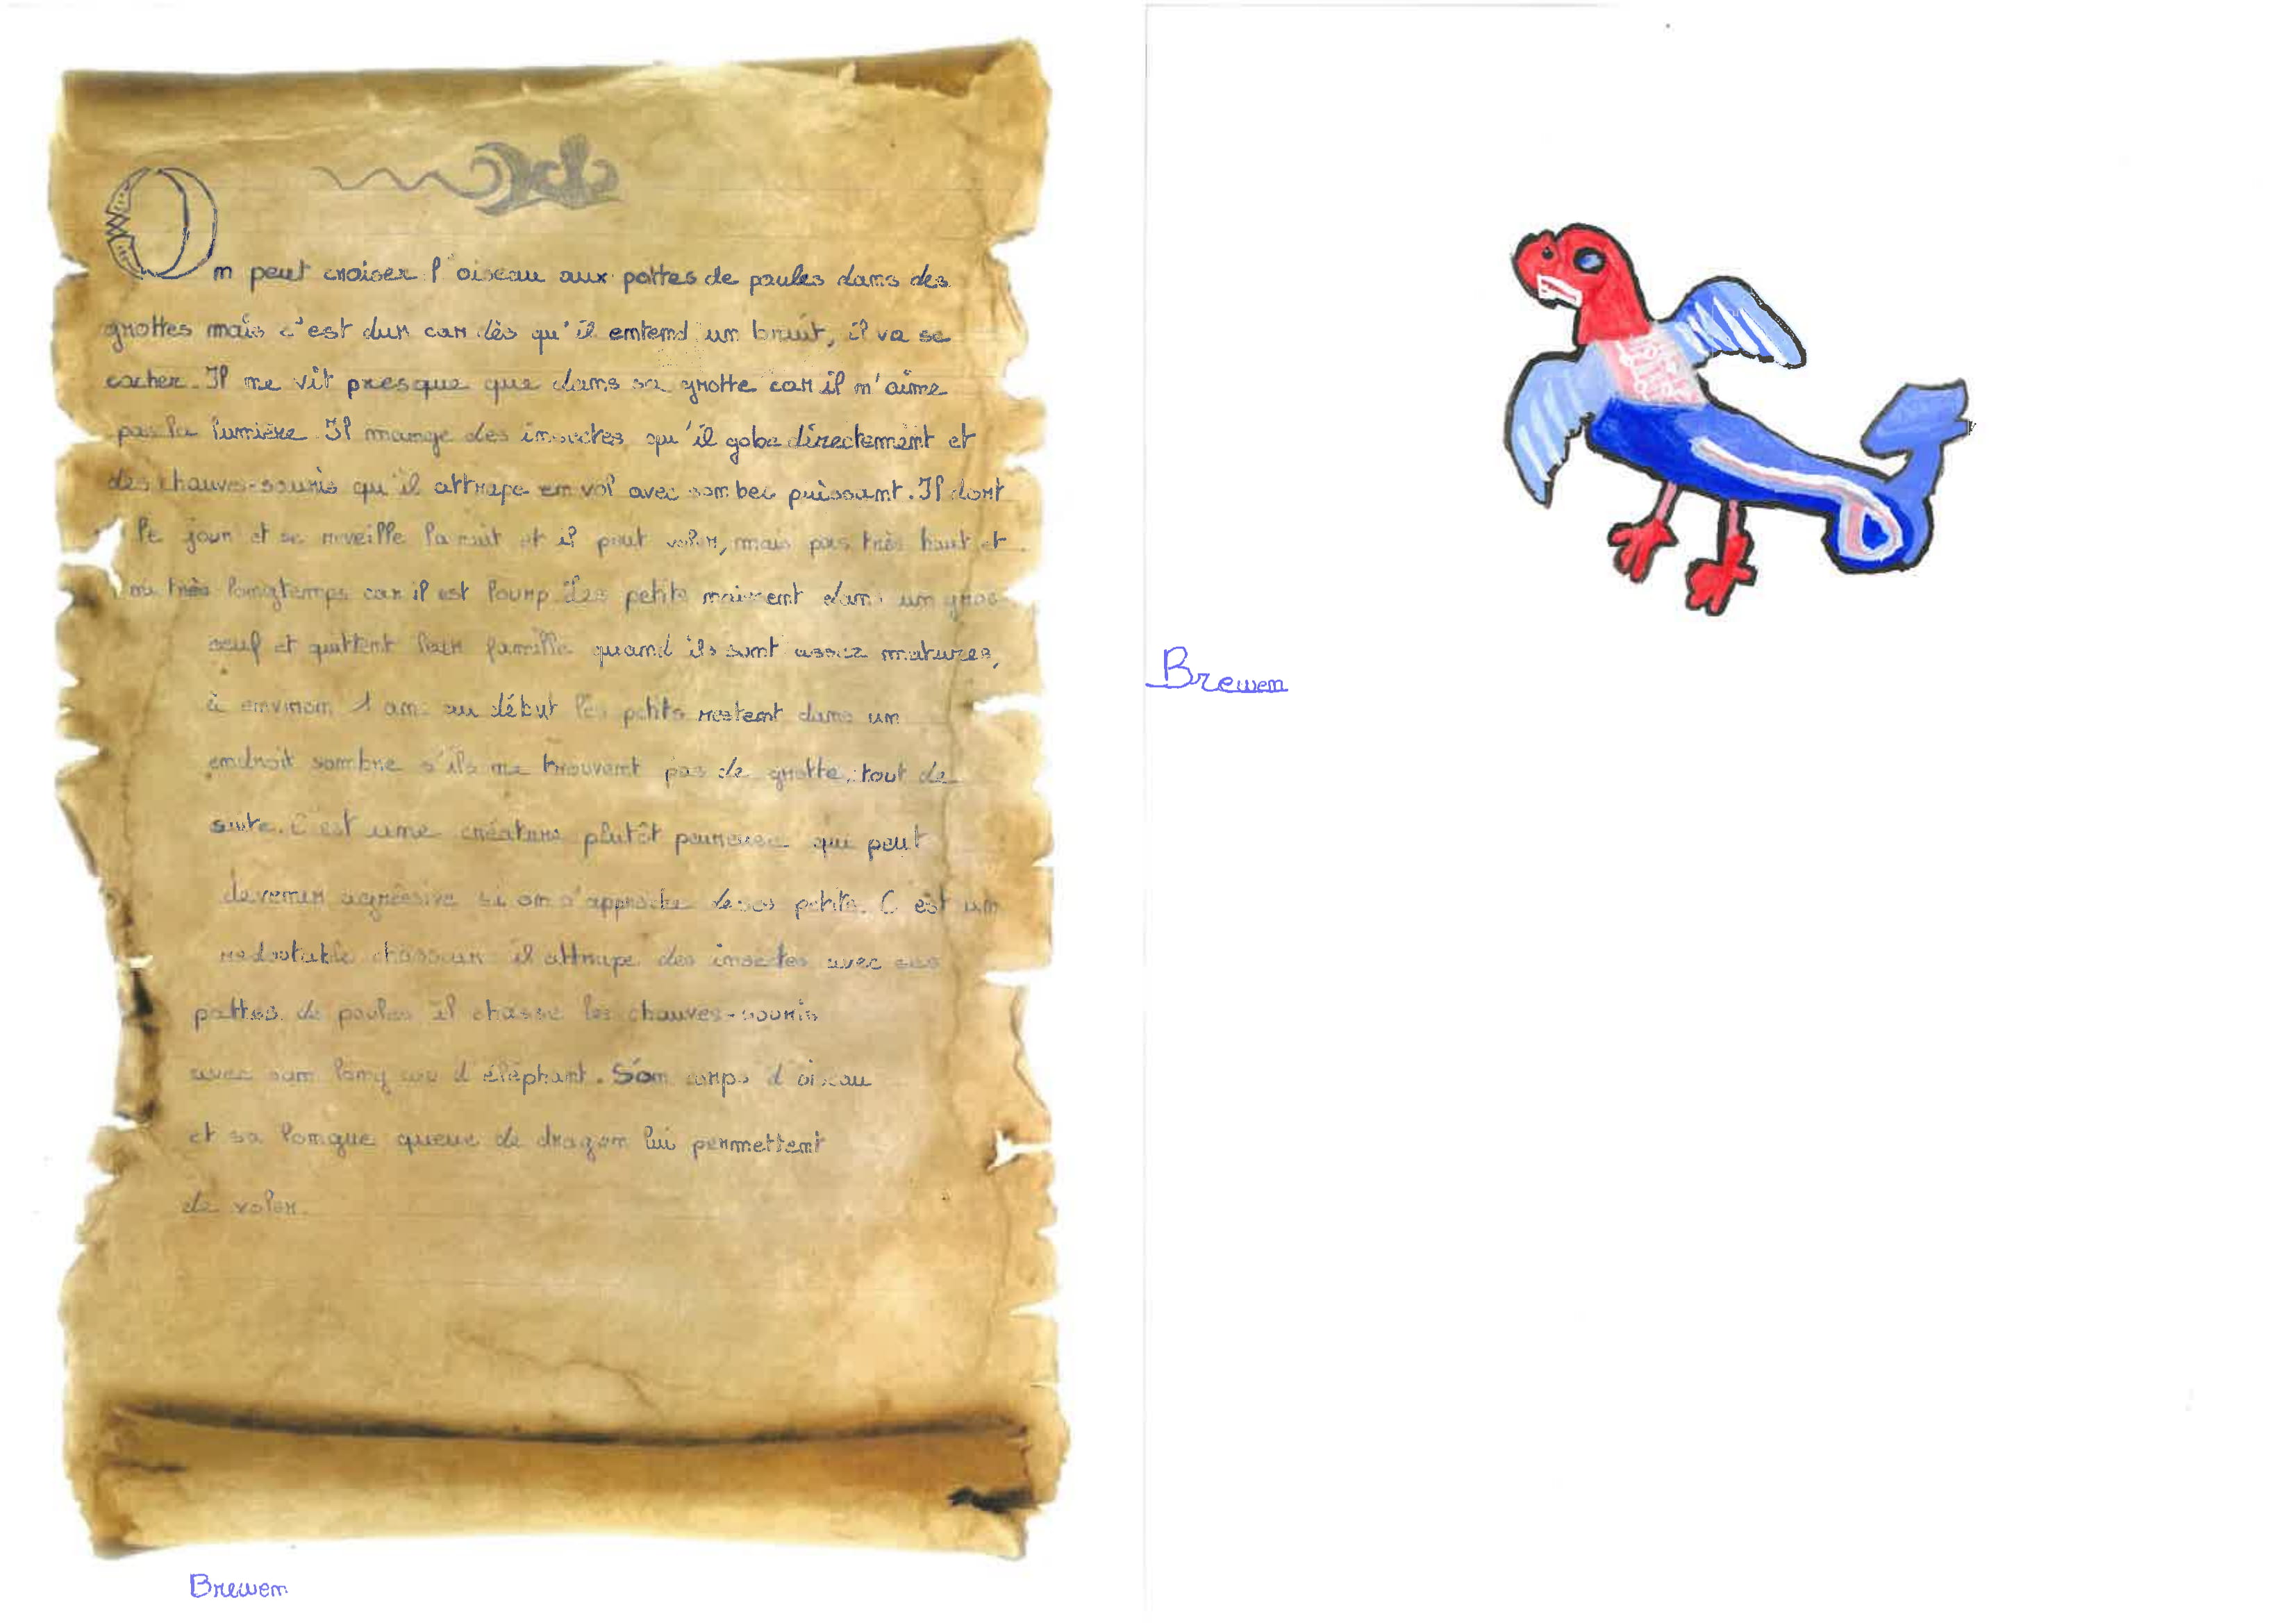 On peut croiser l'oiseau aux pattes de poules dans des
grottes mais c'est dur car dès qu'il entend un bruit, il va se
cacher. Il ne vit presque que dans sa grotte car il n'aime
pas la lumière. Il mange des insectes qu'il gobe directement et
des chauves-souris qu'il attrape en vol avec son bec puissant. Il dort
le jour et se réveille la nuit et il peut voler, mais pas très haut et
ni très longtemps car il est lourp. Les petits naissent dans un gros
oeuf et quittent leur famille quand ils sont assez matures,
à environ 1 an. au début les petits restent dans un
endroit sombre s'ils ne trouvent pas de grotte, tout de
suite. C'est une créature plutôt peureuse qui peut
devenir agréssive si on s'approche de ses petits. C'est un
redoutable chasseur il attrape des insectes avec ses
pattes de poules il chasse les chauves-souris
avec son long cou d'éléphant. Son corps d'oiseau
et sa longue queue de dragon lui permettent
de voler.
Brewen
Brewen